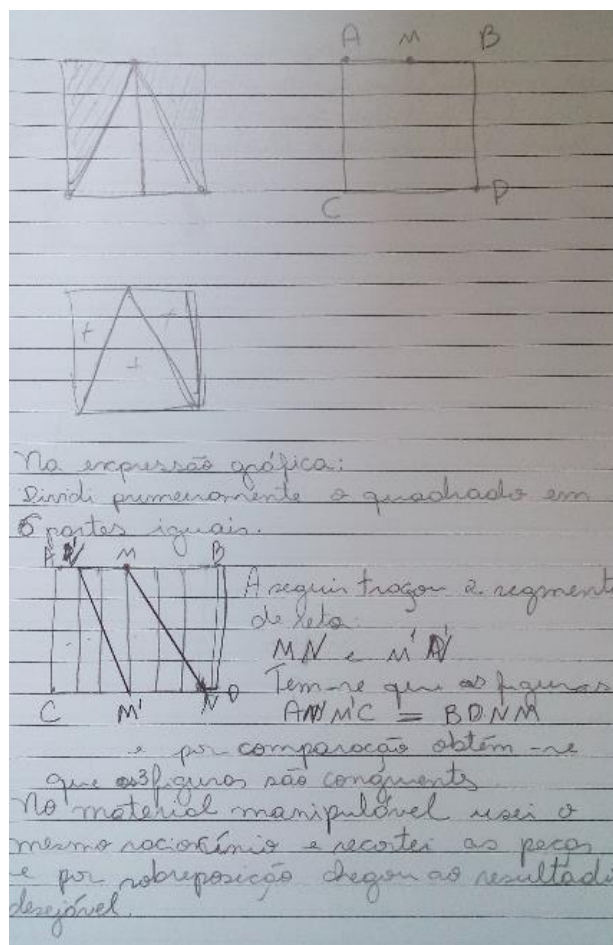 A M B
C D
+ + +
Na expressão gráfica:
Dividi primeiramente o quadrado em
6 partes iguais.
A N' M B
A seguir traçou 2 segmento
de reta
MN e M'N'
Tem-se que as figuras
C M' N D
AN'M'C = BDNM
e por comparação obtém-se
que as 3 figuras são congruentes
No material manipulável usei o
mesmo raciocínio e recortei as peças
e por sobreposição chegou ao resultado
desejável.